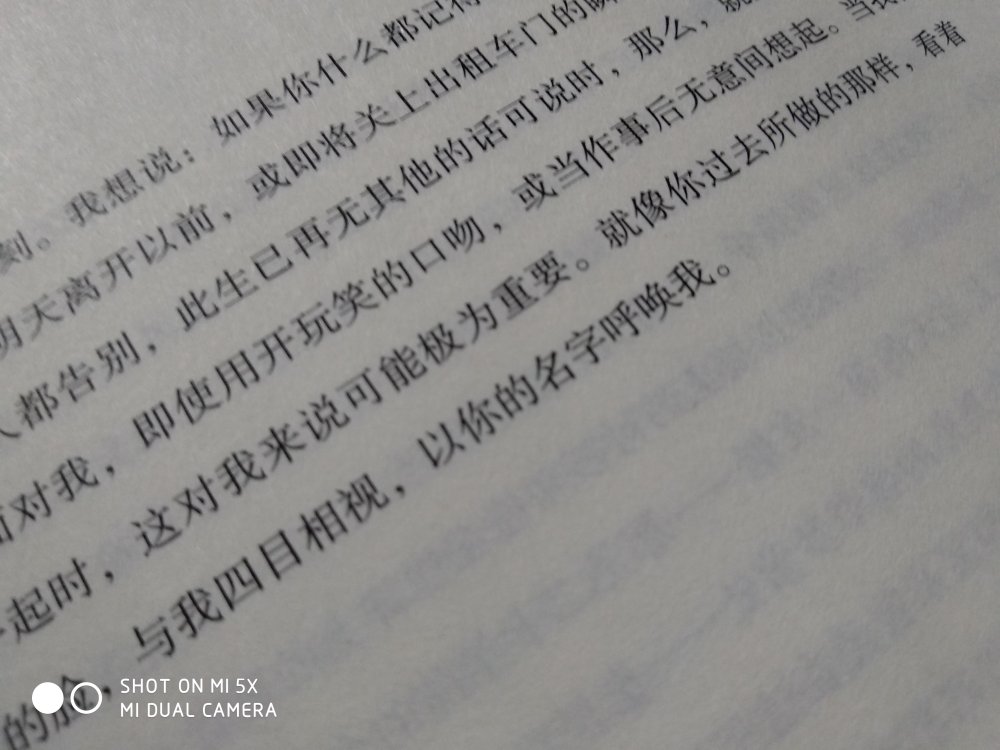 刻。我想说：如果你什么都记得
明天离开以前，或即将关上出租车门的瞬
人都告别，此生已再无其他的话可说时，那么，就
面对我，即使用开玩笑的口吻，或当作事后无意间想起。当我
起时，这对我来说可能极为重要。就像你过去所做的那样，看着
的脸，与我四目相视，以你的名字呼唤我。
SHOT ON MI 5X
MI DUAL CAMERA